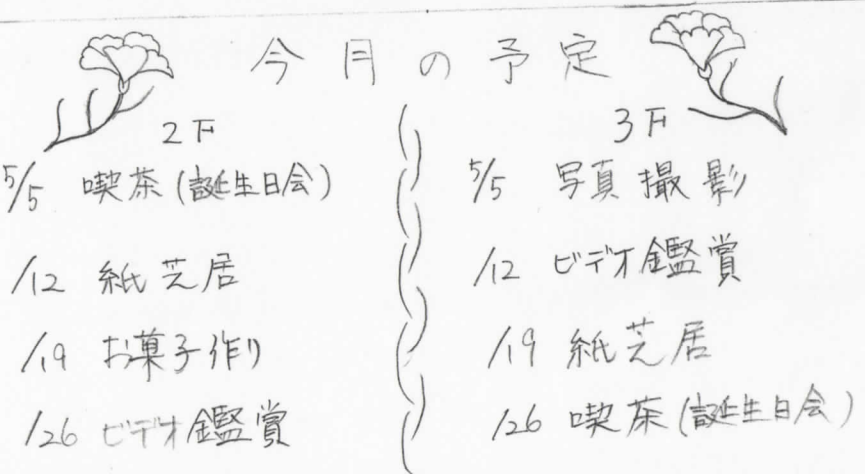 今月の予定
2F
5/5 喫茶(誕生日会)
/12 紙芝居
/19 お菓子作り
/26 ビデオ鑑賞
3F
5/5 写真撮影
/12 ビデオ鑑賞
/19 紙芝居
/26 喫茶(誕生日会)